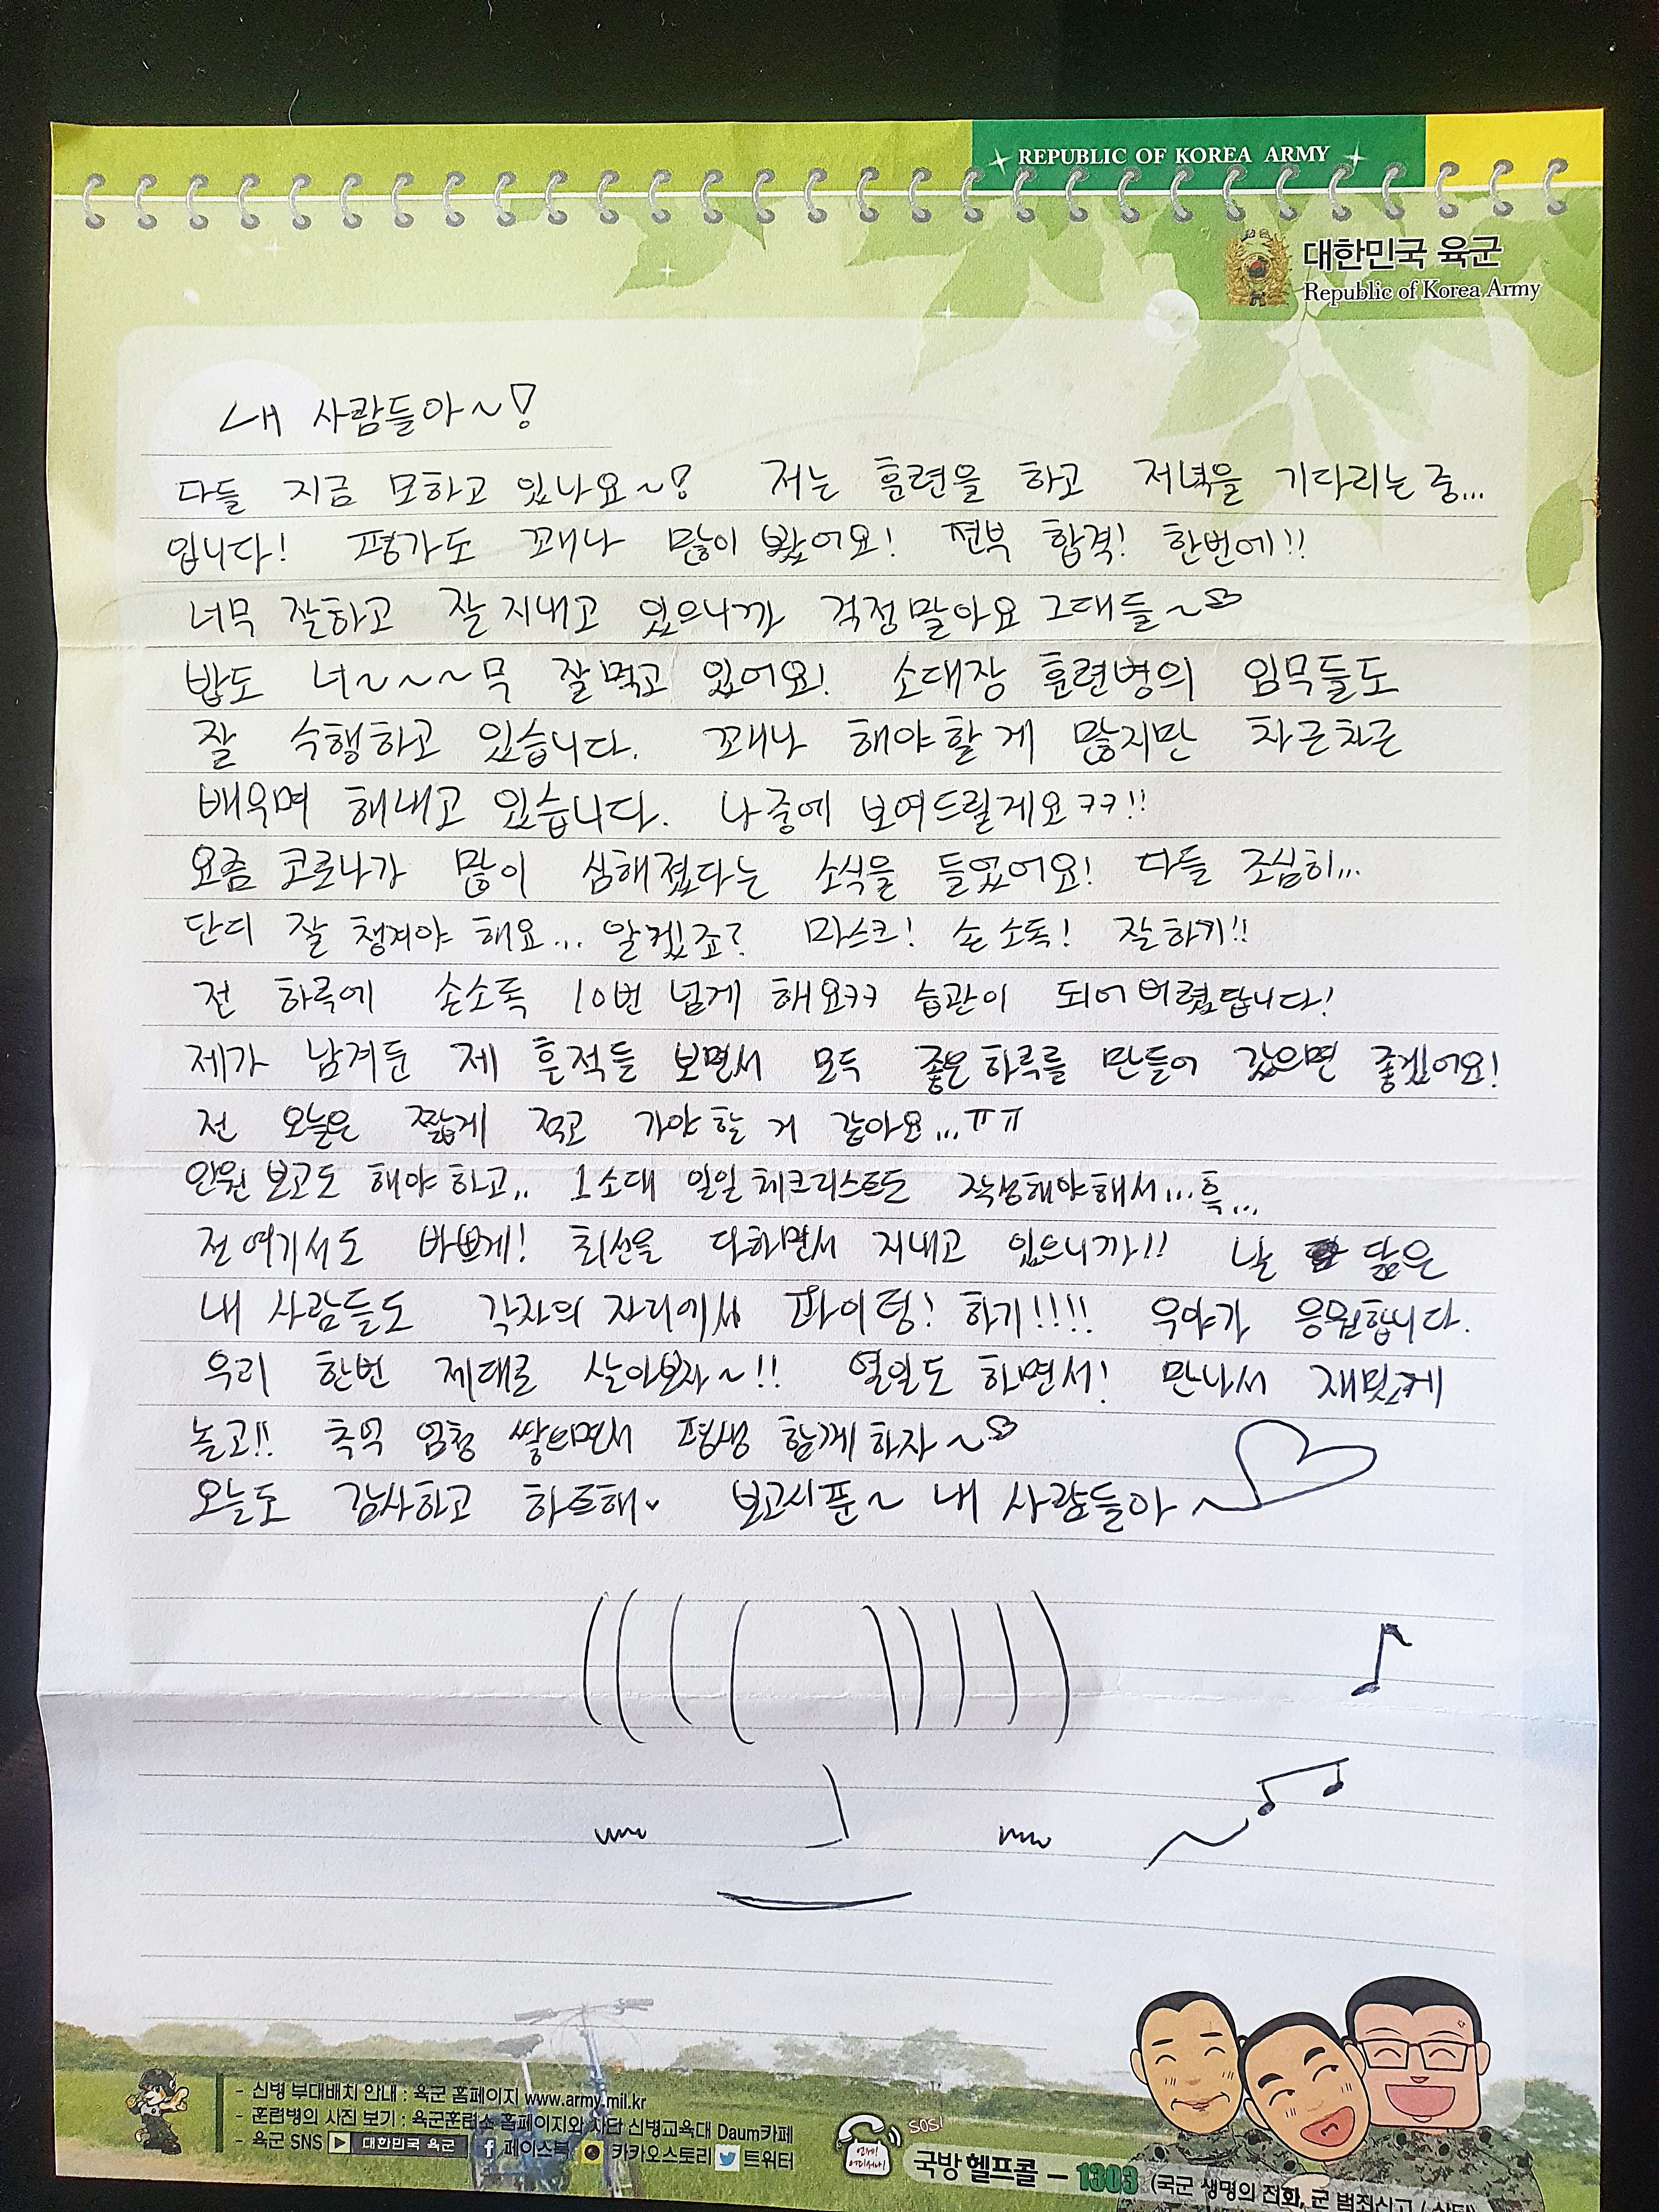 REPUBLIC OF KOREA ARMY
대한민국 육군
Republic of Korea Army
내 사람들아~!
다들 지금 모하고 있나요~! 저는 훈련을 하고 저녁을 기다리는 중...
입니다! 평가도 꽤나 많이 봤어요! 전부 합격! 한번에!!
너무 잘하고 잘 지내고 있으니까 걱정말아요 그대들~
밥도 너~~~무 잘먹고 있어요! 소대장 훈련병의 임무들도
잘 수행하고 있습니다. 꽤나 해야할게 많지만 차근차근
배우며 해내고 있습니다. 나중에 보여드릴게요ㅋㅋ!!
요즘 코로나가 많이 심해졌다는 소식을 들었어요! 다들 조심히...
단디 잘 챙겨야 해요... 알겠죠? 마스크! 손소독! 잘하기!!
전 하루에 손소독 10번 넘게 해요ㅋㅋ 습관이 되어버렸답니다!
제가 남겨둔 제 흔적들 보면서 모두 좋은하루를 만들어 갔으면 좋겠어요!
전 오늘은 짧게 적고 가야할 거 같아요...ㅠㅠ
인원보고도 해야하고.. 1소대 일일 체크리스트도 작성해야해서...흑...
전 여기서도 바쁘게! 최선을 다하면서 지내고 있으니까!! 날 닮은
내 사람들도 각자의 자리에서 파이텅! 하기!!!! 우야가 응원합니다.
우리 한번 제대로 살아보자~!! 열일도 하면서! 만나서 재밌게
놀고!! 추억 엄청 쌓으면서 평생 함께하자~
오늘도 감사하고 하트해♥ 보고시푼~ 내 사람들아~
- 신병 부대배치 안내 : 육군 홈페이지 www.army.mil.kr
- 훈련병의 사진 보기 : 육군훈련소 홈페이지와 사단 신병교육대 Daum카페
- 육군 SNS 대한민국 육군 페이스북 카카오스토리 트위터
SOS!
언제! 어디서나!
국방헬프콜 - 1303 (국군 생명의 전화, 군 범죄신고 / 상담)